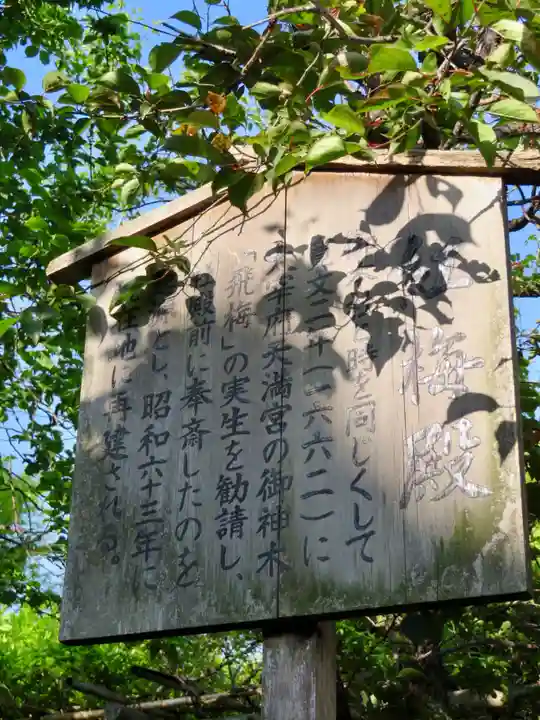 紅梅殿
宮と時を同じくして
寛文二十一(一六六二)に
太宰府天満宮の御神木
「飛梅」の実生を勧請し、
殿前に奉斎したのを
とし、昭和六十三年に
在地に再建される。